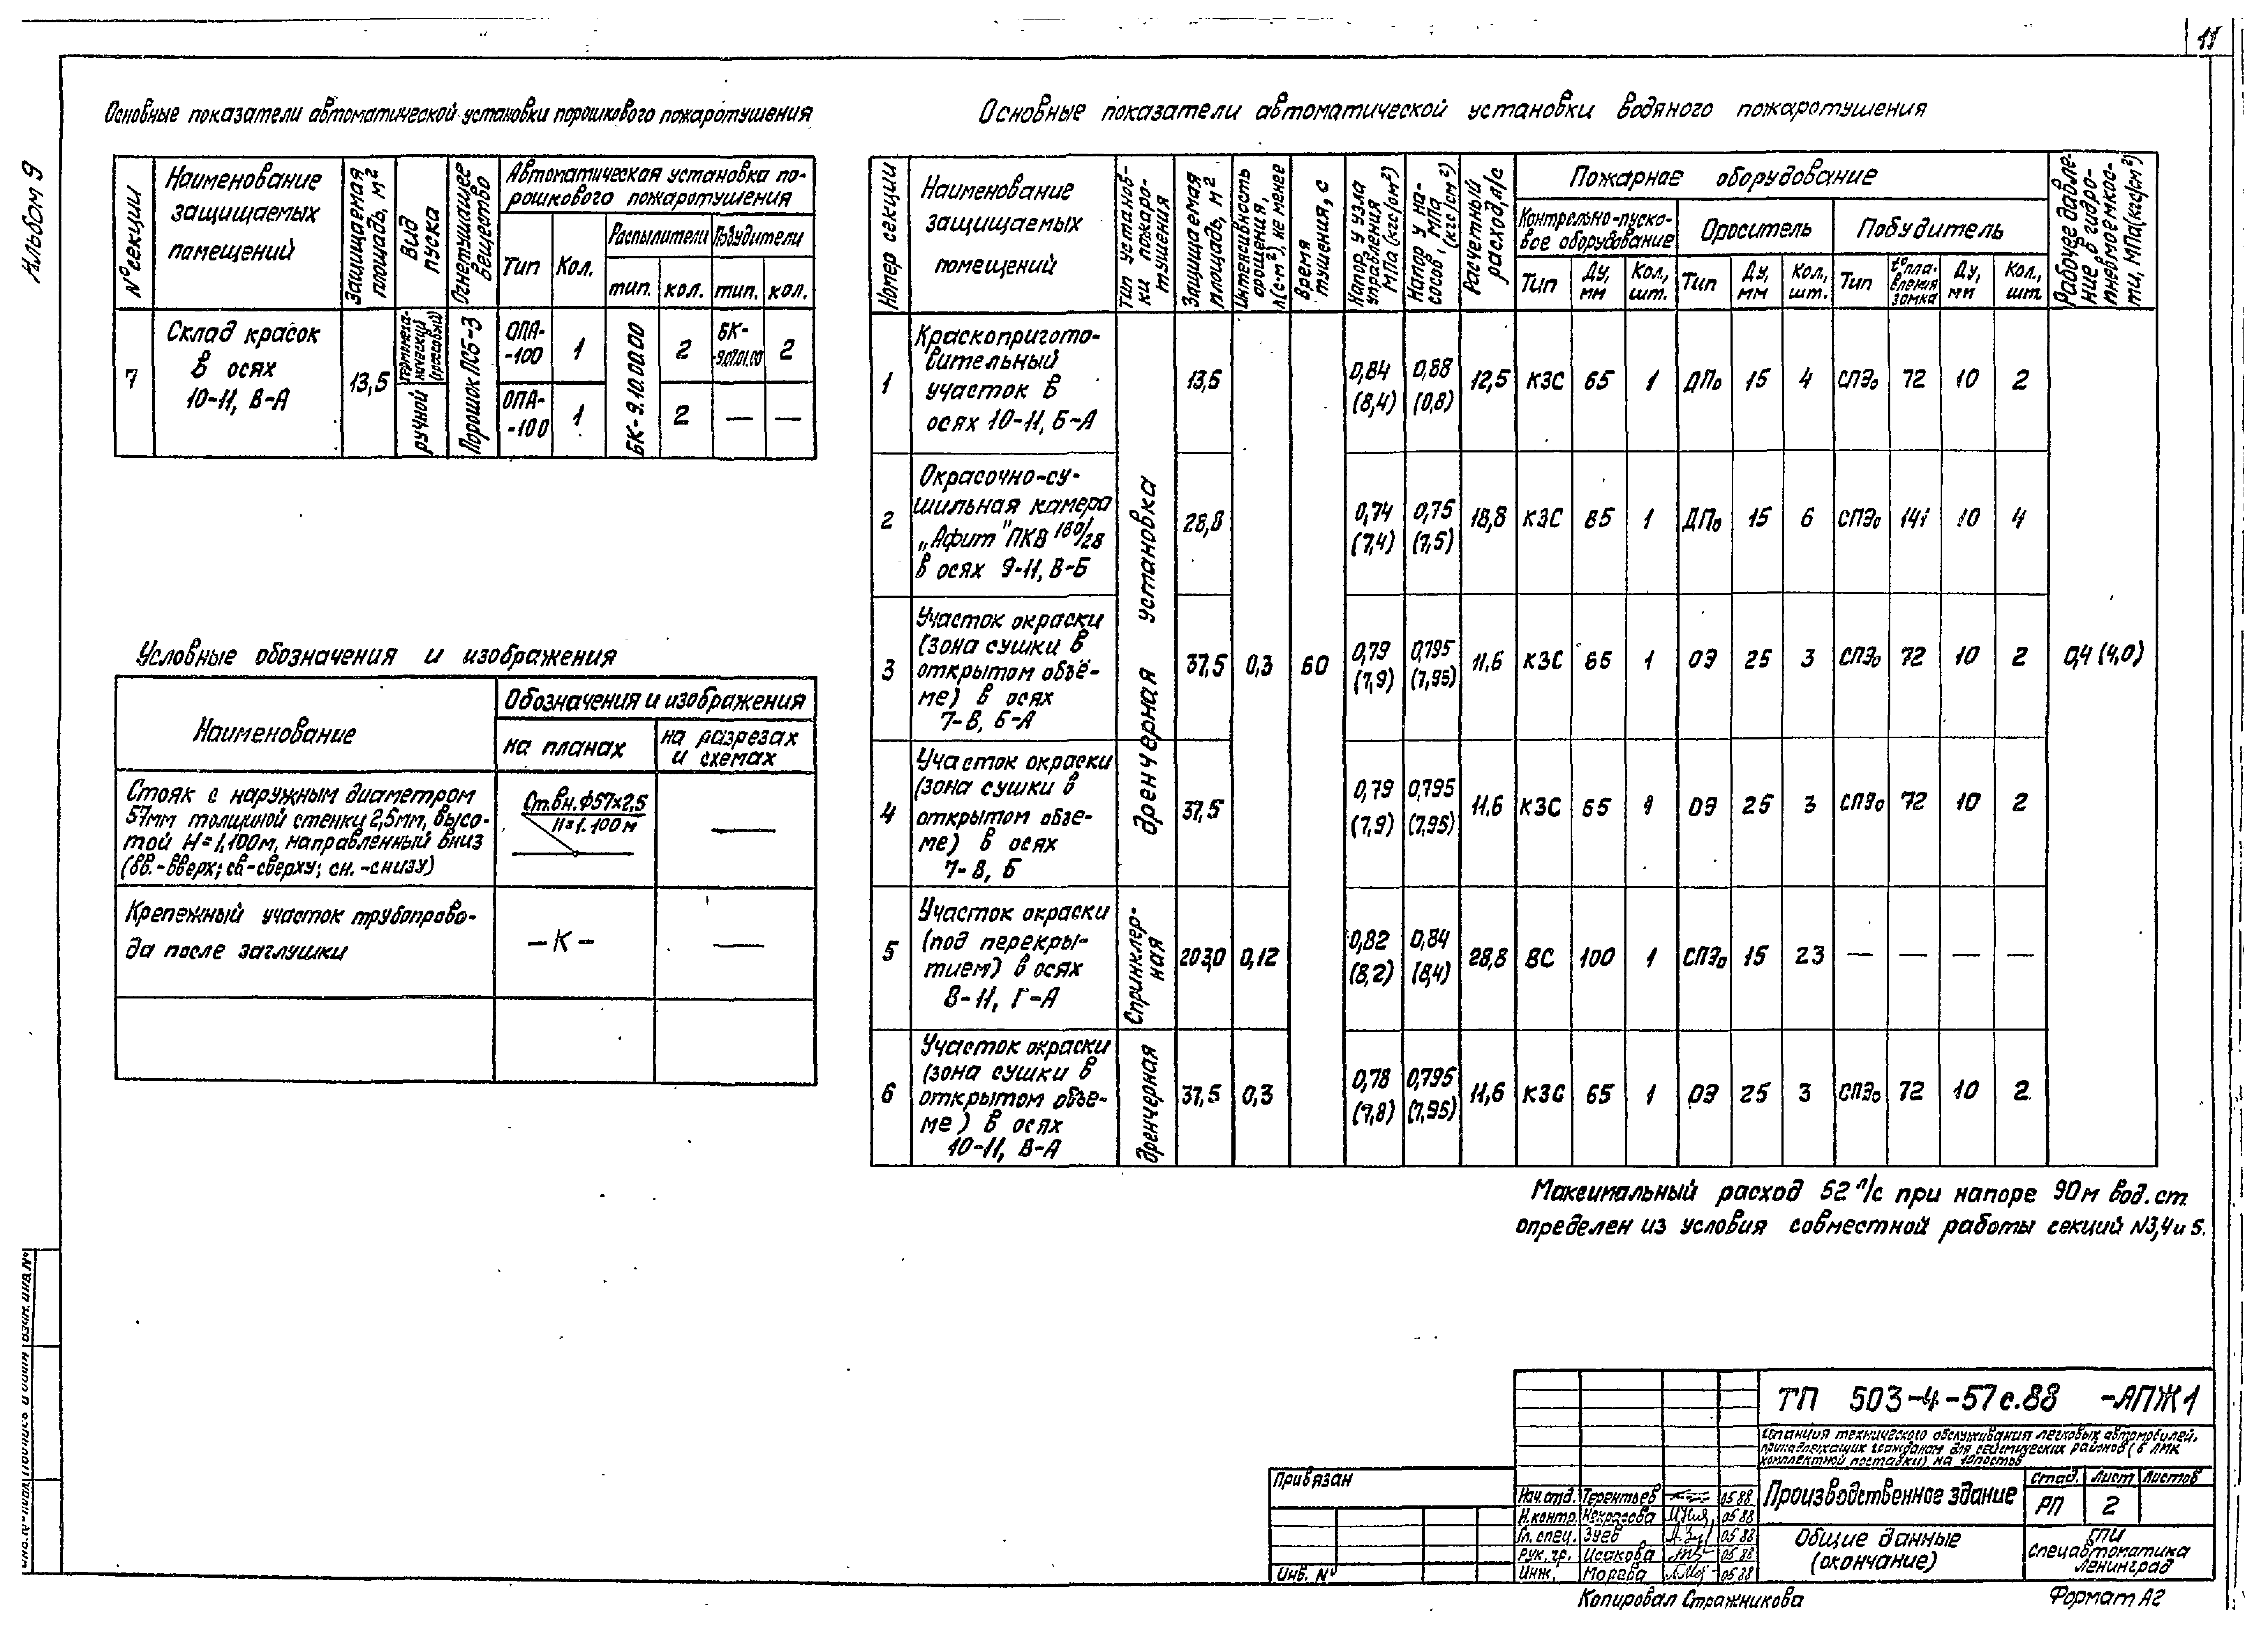 11
Альбом 9
Основные показатели автоматической установки порошкового пожаротушения
№ секции
Наименование
защищаемых
помещений
Защищаемая
площадь, м²
Вид
пуска
Огнетушащее
вещество
Автоматическая установка по-
рошкового пожаротушения
Тип
Кол.
Распылители
Побудители
тип.
кол.
тип.
кол.
7
Склад красок
в осях
10-11, В-А
13,5
ручной
Порошок ПСБ-3
ОПА-
-100
1
БК-9.10.00.00
2
БК-
-9.07.01.00
2
ОПА-
-100
1
2
—
—
Условные обозначения и изображения
Наименование
Обозначения и изображения
на планах
на разрезах
и схемах
Стояк с наружным диаметром
57мм толщиной стенки 2,5мм, высо-
той Н=1,100м, направленный вниз
(вв.-вверх; св-сверху; сн.-снизу)
Ст.вн.ф57х2,5
Н=1.100м
Крепежный участок трубопрово-
да после заглушки
-К-
Основные показатели автоматической установки водяного пожаротушения
Номер секции
Наименование
защищаемых
помещений
Тип установ-
ки пожаро-
тушения
Защищаемая
площадь, м²
Интенсивность
орошения,
л/(с·м²), не менее
Время
тушения, с
Напор у узла
управления
МПа (кгс/см²)
Напор у на-
сосов, МПа
(кгс/см²)
Расчетный
расход, л/с
Пожарное оборудование
Контрольно-пуско-
вое оборудование
Ороситель
Побудитель
Тип
Ду, мм
Кол., шт.
Тип
Ду, мм
Кол., шт.
Тип
t° пла-
вления
замка
Ду, мм
Кол., шт.
Рабочее давле-
ние в гидро-
пневмоемкос-
ти, МПа(кгс/см²)
1
Краскопригото-
вительный
участок в
осях 10-11, Б-А
13,5
0,84 (8,4)
0,88 (0,8)
12,5
КЗС
65
1
ДПо
15
4
СПЭо
72
10
2
2
Окрасочно-су-
шильная камера
„Афит" ПКВ 180/28
в осях 9-11, В-Б
дренчерная установка
28,8
0,74 (7,4)
0,75 (7,5)
18,8
КЗС
65
1
ДПо
15
6
СПЭо
141
10
4
3
Участок окраски
(зона сушки в
открытом объё-
ме) в осях
7-8, Б-А
37,5
0,3
60
0,79 (7,9)
0,795 (7,95)
11,6
КЗС
65
1
ОЭ
25
3
СПЭо
72
10
2
0,4 (4,0)
4
Участок окраски
(зона сушки в
открытом объе-
ме) в осях
7-8, Б
37,5
0,79 (7,9)
0,795 (7,95)
11,6
КЗС
65
1
ОЭ
25
3
СПЭо
72
10
2
5
Участок окраски
(под перекры-
тием) в осях
8-11, Г-А
Спринклер-
ная
203,0
0,12
0,82 (8,2)
0,84 (8,4)
28,8
ВС
100
1
СПЭо
15
23
—
—
—
—
6
Участок окраски
(зона сушки в
открытом объе-
ме) в осях
10-11, В-А
дренчерная
37,5
0,3
0,78 (7,8)
0,795 (7,95)
11,6
КЗС
65
1
ОЭ
25
3
СПЭо
72
10
2
Максимальный расход 52 л/с при напоре 90м вод. ст.
определен из условия совместной работы секций №3,4 и 5.
ТП 503-4-57с.88 -АПЖ1
Станция технического обслуживания легковых автомобилей,
принадлежащих гражданам для сейсмических районов (в ЛМК
комплектной поставки) на 10 постов
Привязан
Инв. №
Нач. отд. Терентьев 05.88
Н. контр. Некрасова 05.88
Гл. спец. Зуев 05.88
Рук. гр. Исакова 05.88
Инж. Морева 05.88
Производственное здание
Стад. Лист Листов
РП 2
Общие данные
(окончание)
ГПИ
Спецавтоматика
Ленинград
Копировал Стражникова
Формат А2